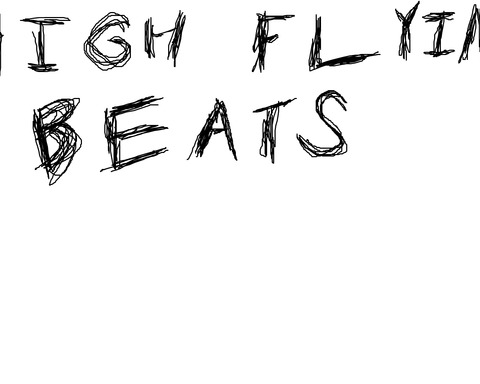 HIGH FLYIN
BEATS